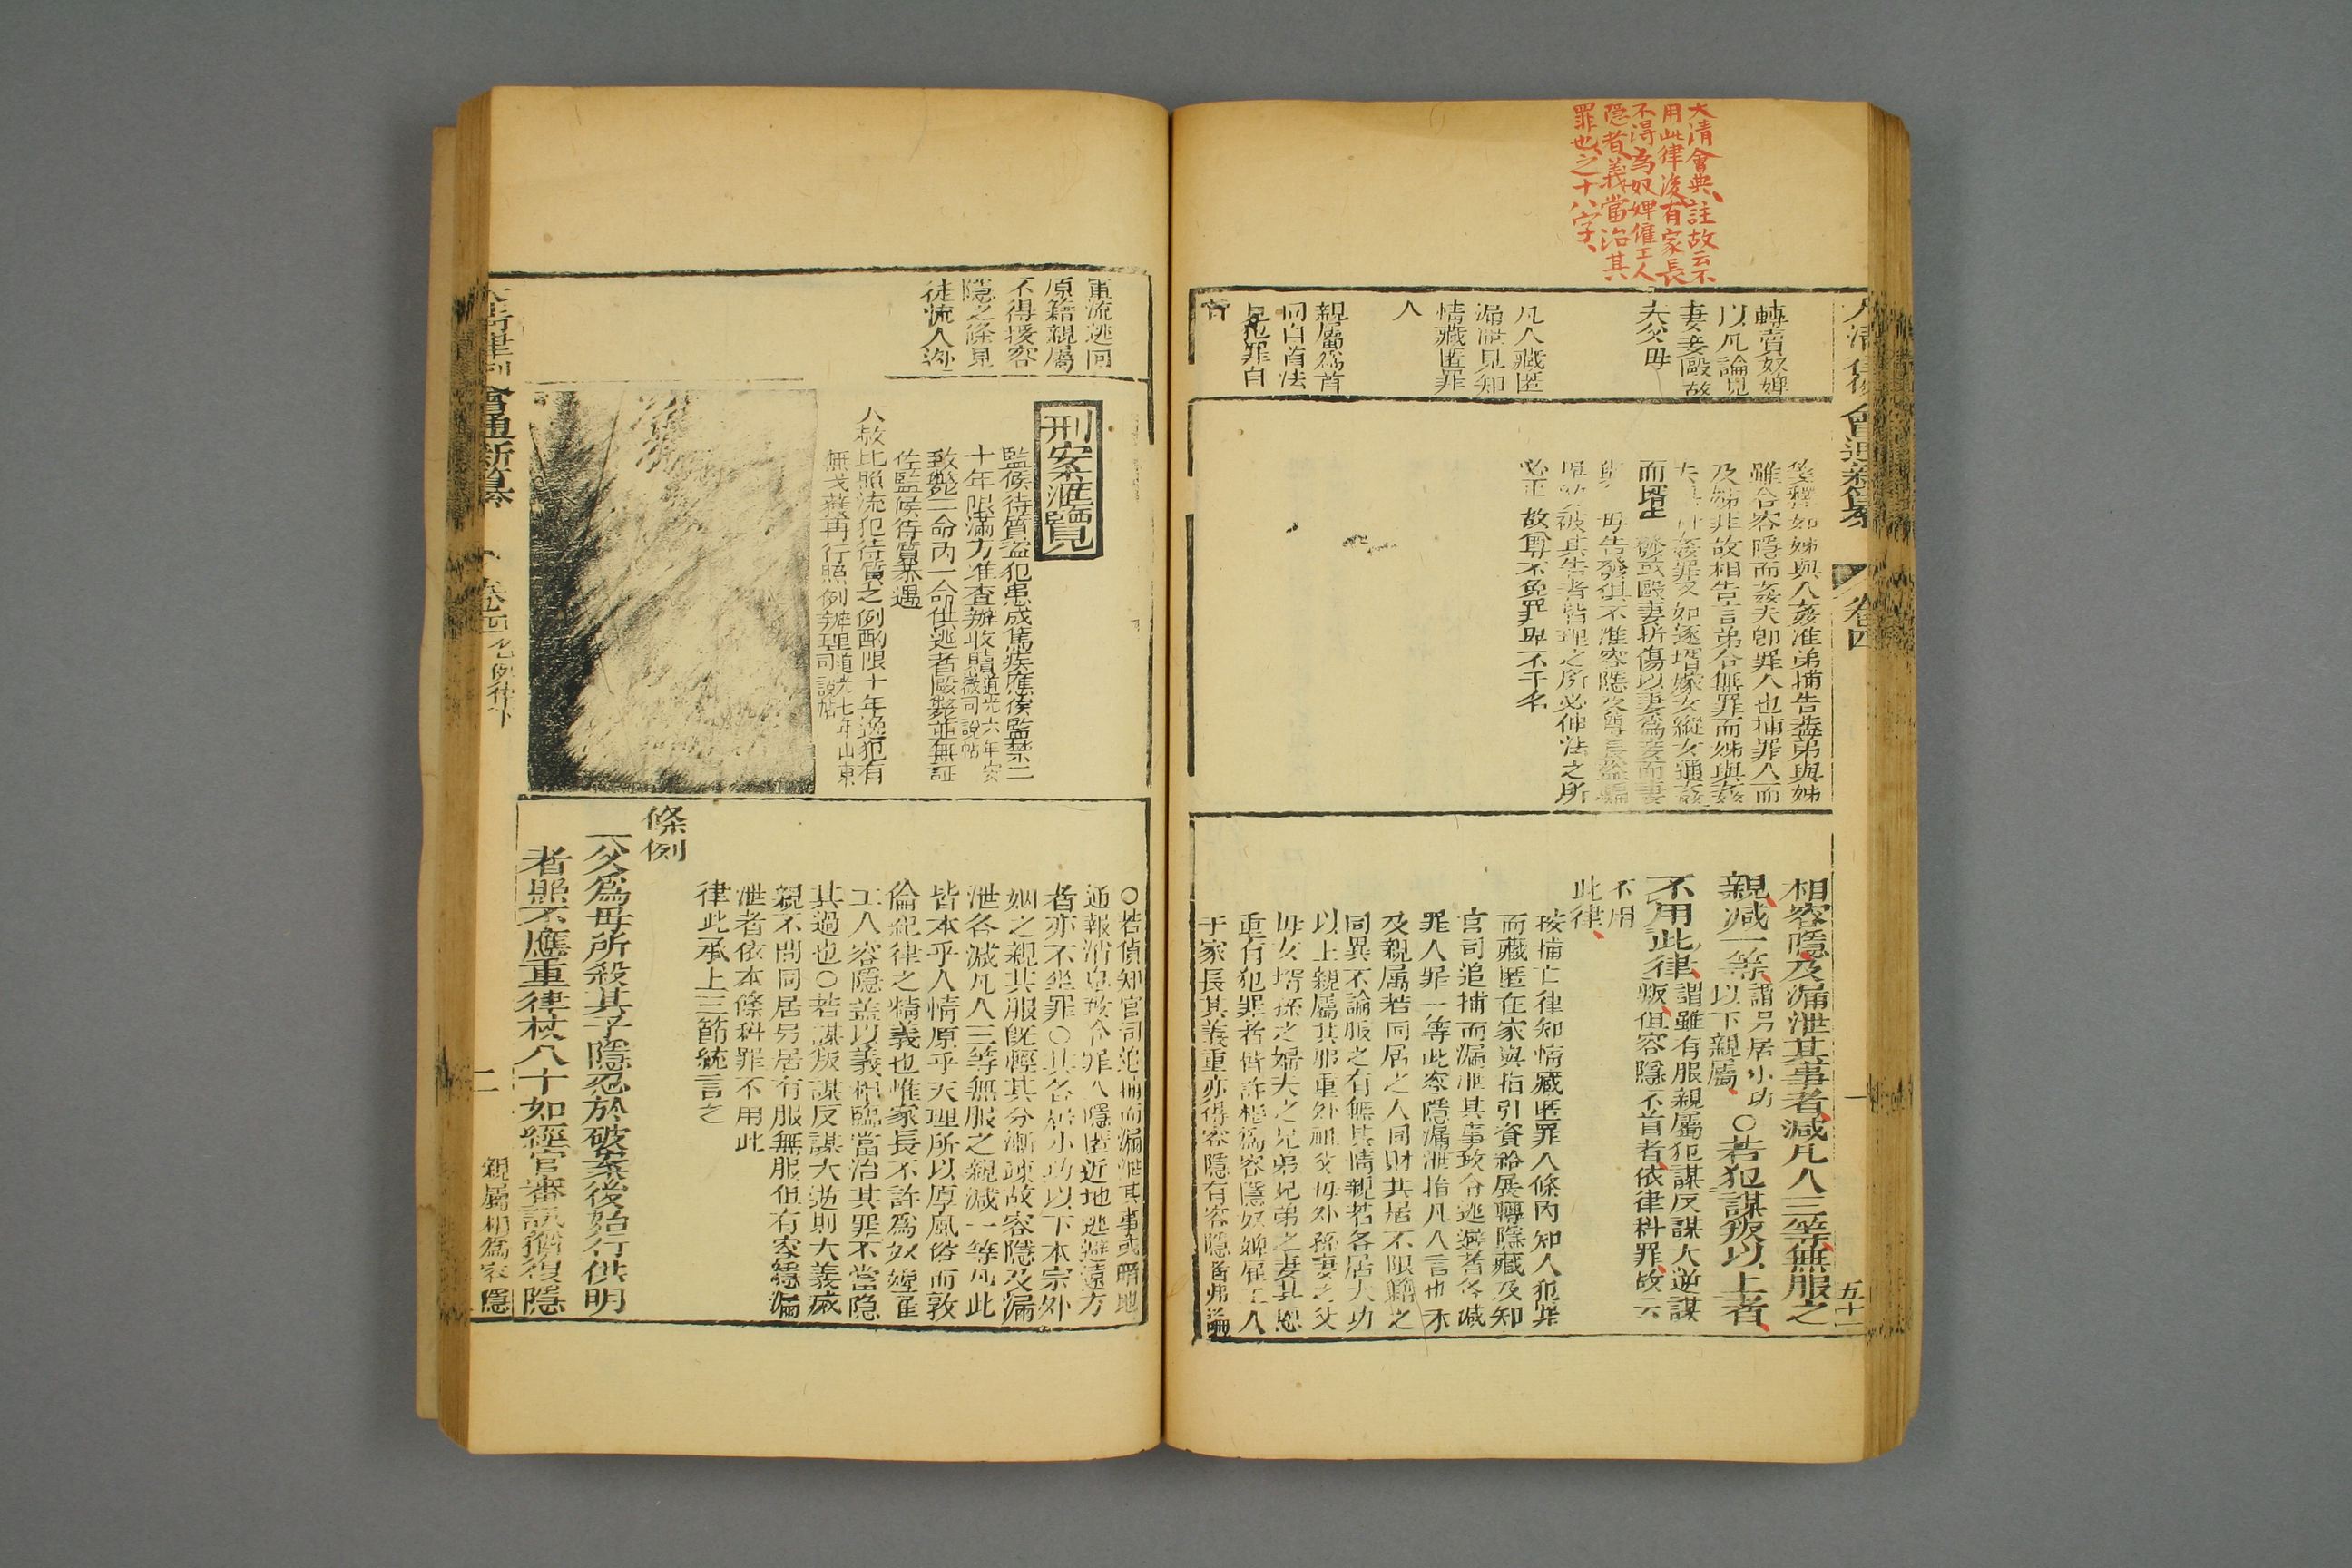 大清會典註故云不
用此律後有家長
不得為奴婢僱工人
隱者義當治其
罪也之十八字
大清律例會通新纂
卷四
五十二
轉賣奴婢
以凡論見
妻妾毆故
夫父母
凡人藏匿
漏泄見知
情藏匿罪
人
親屬為首
同自首法
見犯罪自
首
雖合容隱而姦夫卽罪人也捕罪人而
及姊非故相告言弟合無罪而姊與姦
罪又如逐壻嫁女縱女通姦
而壻
毆妻折傷以妻為妾而妻
告發俱不准容隱及尊長
被其告者皆理之所必伸法之所
必正故尊不免罪卑不干名
相容隱及漏泄其事者減凡人三等無服之
親減一等謂另居小功
以下親屬○若犯謀叛以上者
不用此律謂雖有服親屬犯謀反謀大逆謀
叛但容隱不首者依律科罪故云
不用
此律
按捕亡律知情藏匿罪人條內知人犯罪
而藏匿在家與指引資給展轉隱藏及知
官司追捕而漏泄其事致令逃避者各減
罪人罪一等此容隱漏泄指凡人言也不
及親屬若同居之人同財共居不限籍之
同異不論服之有無其情親若各居大功
以上親屬其服重外祖父母外孫妻之父
母女壻孫之婦夫之兄弟兄弟之妻其恩
重有犯罪者皆許相為容隱奴婢雇工人
于家長其義重亦得容隱有容隱者弗論
軍流逃回
原籍親屬
不得援容
隱之條見
徒流人逃
刑案滙覽
監候待質盜犯患成篤疾應俟監禁二
十年限滿方准查辦收贖道光六年安
徽司說帖
致斃二命內一命供逃者毆斃並無証
佐監候待質恭遇
人赦比照流犯待質之例酌限十年逸犯有
無戈獲再行照例辦理道光七年山東
司說帖
○若偵知官司追捕而漏泄其事或暗地
通報消息致令罪人隱匿近地逃避遠方
者亦不坐罪○其各居小功以下本宗外
姻之親其服旣輕其分漸疎故容隱及漏
泄各減凡人三等無服之親減一等凡此
皆本乎人情原乎天理所以原風俗而敦
倫紀律之精義也惟家長不許為奴婢雇
工人容隱蓋以義相臨當治其罪不當隱
其過也○若謀叛謀反謀大逆則大義滅
親不問同居另居有服無服但有容隱漏
泄者依本條科罪不用此
律此承上三節統言之
條例
一父為母所殺其子隱忍於破案後始行供明
者照不應重律杖八十如經官審訊猶復隱
會通新纂
卷四名例律下
二
親屬相為容隱